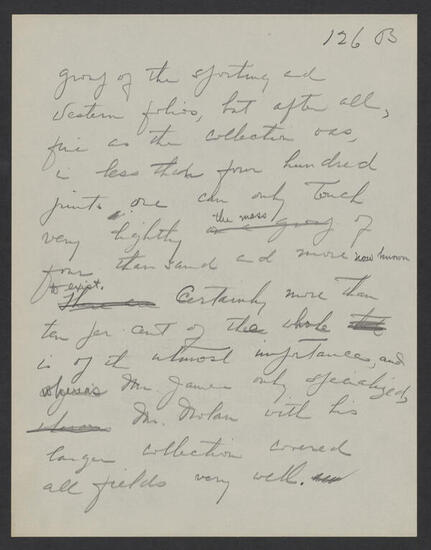 126 B
group of the sporting and
Western folios, but after all,
fine as the collection was,
in less than four hundred
prints one can only touch
very lightly on a group the mass of
four thousand and more now known
to exist. There are Certainly more than
ten per cent of the whole
is of the utmost importance, and
whereas Mr. James only specialized,
whereas Mr. Nolan with his
larger collection covered
all fields very well.